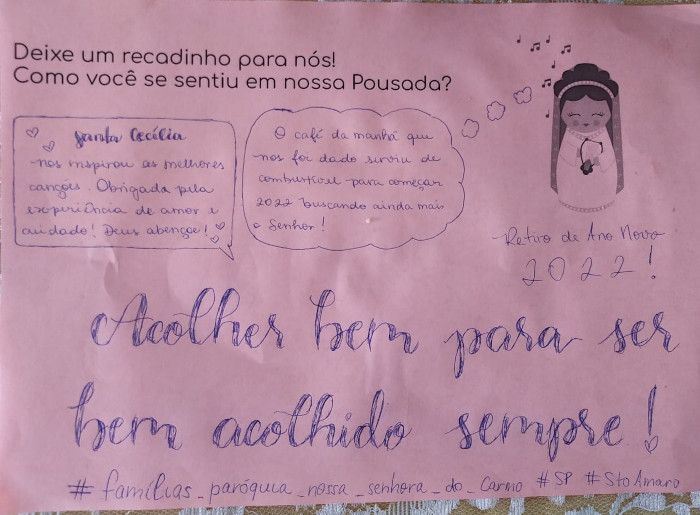 Deixe um recadinho para nós!
Como você se sentiu em nossa Pousada?
Santa Cecília
nos inspirou as melhores
canções. Obrigada pela
experiência de amor e
cuidado! Deus abençoe!
O café da manhã que
nos foi dado serviu de
combustível para começar
2022 buscando ainda mais
o Senhor!
Retiro de Ano Novo
2022!
Acolher bem para ser
bem acolhido sempre!
#famílias_paróquia_nossa_senhora_do_Carmo #SP #StoAmaro